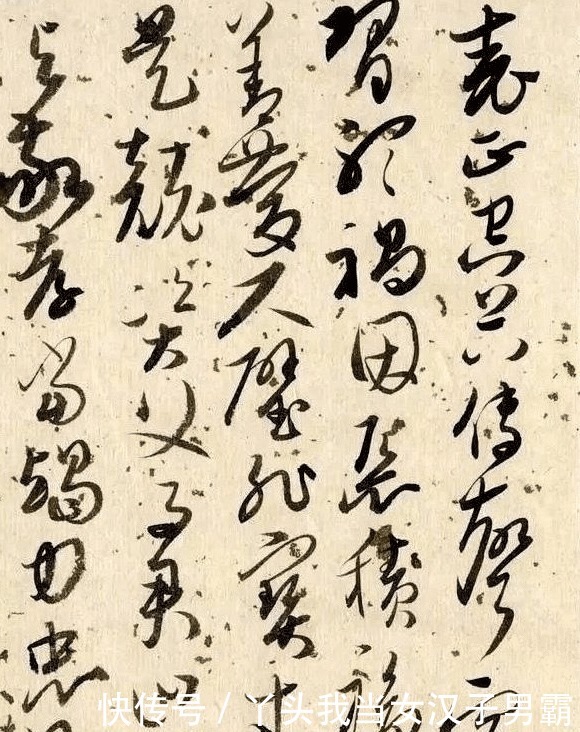 表正空谷傳聲
習聽禍因惡積福
善慶尺璧非寶寸
是競資父事君曰
與敬孝當竭力忠
快传号 / 丫头我当女汉子男霸